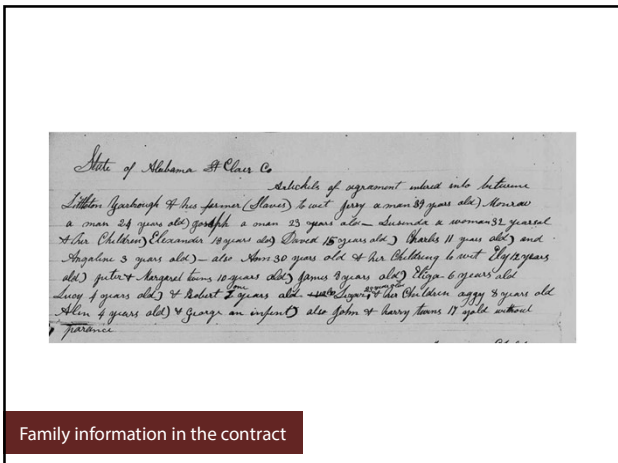 State of Alabama St Clair Co
Artickels of agrament entered into betwene
Littleton Yarbrough & his former (Slaves) to wit Jerry a man 39 years old) Monrow
a man 24 years old) Joseph a man 23 years old - Lusenda a woman 32 years
& her Children) Elexander 18 years old) David 15 years old) Charls 11 years old) and
Angaline 3 years old) - also Ann 30 years old & her Children to wit Ely 12 years
old) & Margaret twins 10 years old) James 8 years old) Eliza 6 years old
Lucy 4 years old) & Robert one years old & her Children aggy 8 years old
Alin 4 years old) & George an infent) also John & harry twins 17 yold without
parance
Family information in the contract